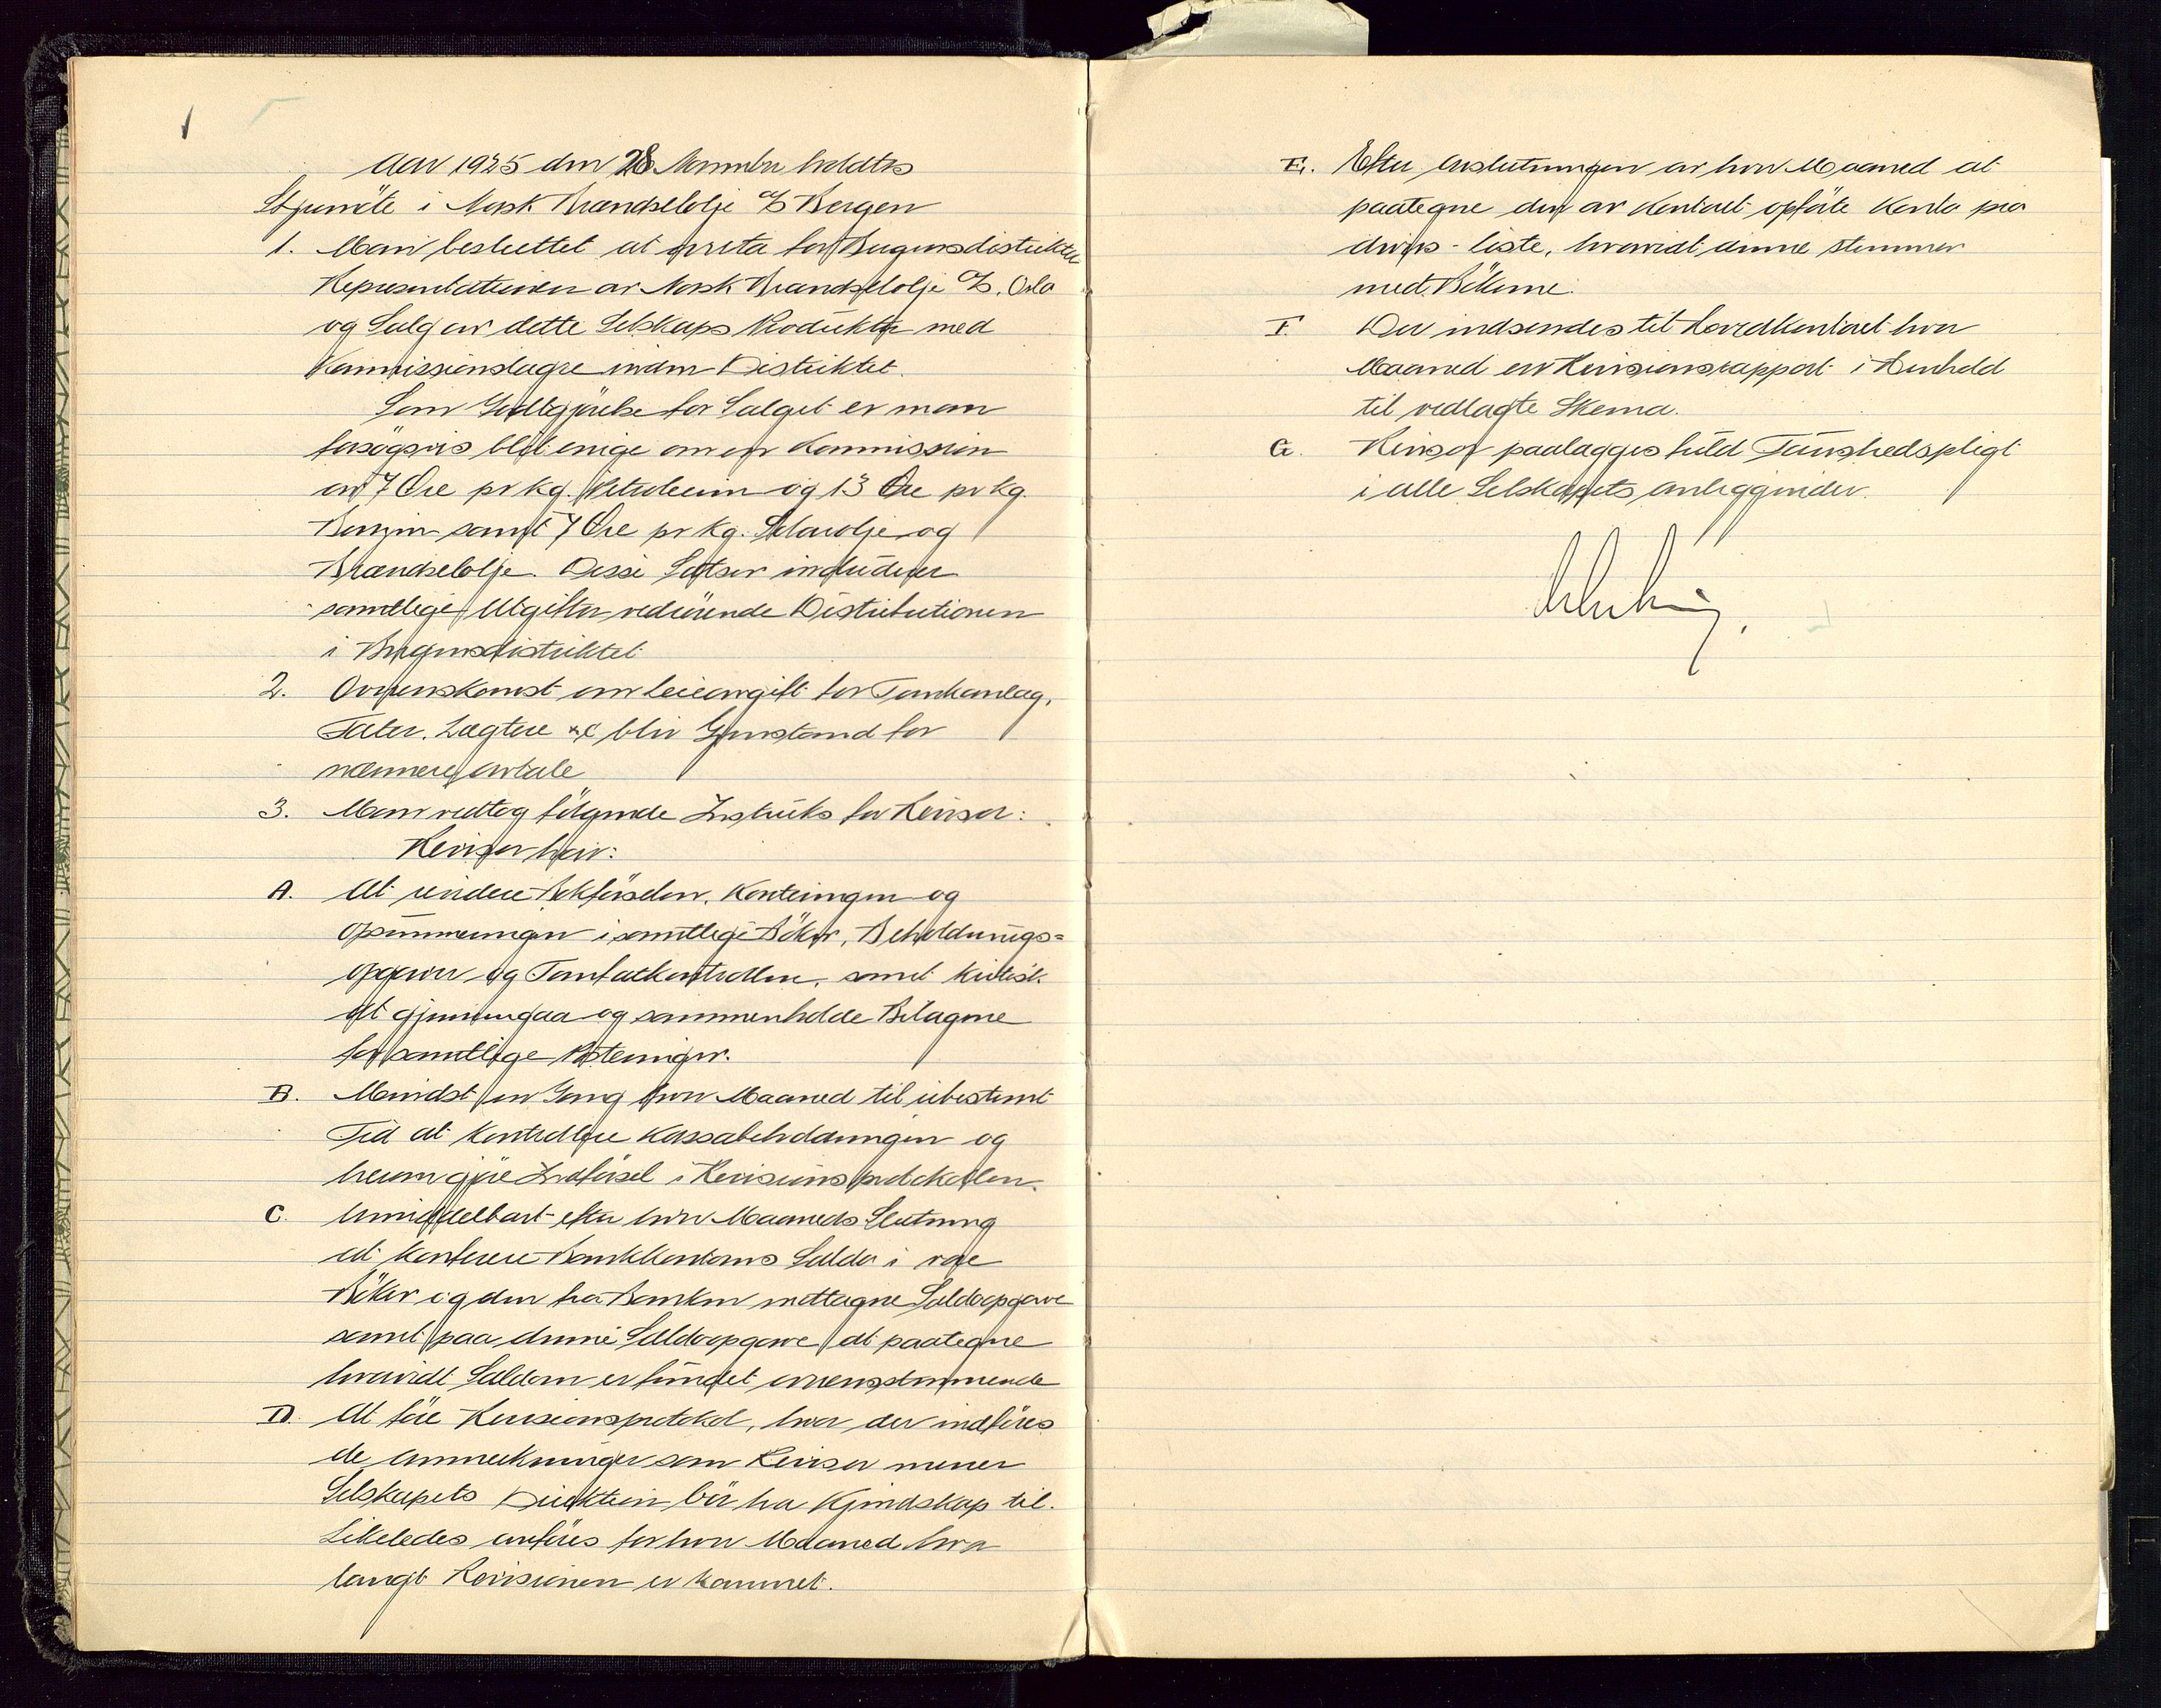 Aar 1925 den 28 November holdtes
Styremöte i Norsk Brændselolje A/S Bergen
1. Man besluttet at overta for Bergensdistriktet
Repræsentationen av Norsk Brændselolje A/S, Oslo
og Salg av dette Selskaps Produkter med
Kommissionslagre inden Distriktet.
Som Godtgjörelse for Salget er man
forsögsvis blit enige om en Kommission
av 7 Øre pr kg. Petroleum og 13 Øre pr kg.
Benzin samt 7 Øre pr kg. Solarolje og
Brændselolje. Disse Satser includerer
samtlige Utgifter vedrörende Distributionen
i Bergensdistriktet
2. Overenskomst om leieavgift for Tankanlæg,
Fater, Lægtere etc blir Gjenstand for
nærmere avtale
3. Man vedtog fölgende Instruks for Revisor:
Revisor har:
A. At revidere Bokförselen, Konteringen og
Opsummeringen i samtlige Böker, Beholdnings=
opgaver og Tomfatkontrollen, samt kritisk
at gjennemgaa og sammenholde Bilagene
for samtlige Posteringer.
B. Mindst en Gang hver Maaned til ubestemt
Tid at kontrollere Kassabeholdningen og
herom gjöre Indförsel i Revisionsprotokollen.
C. Umiddelbart efter hver Maaneds Slutning
at konferere Bankkontoens Saldo i vore
Böker og den fra Banken mottagne Saldoopgave
samt paa denne Saldoopgave at paategne
hvorvidt Saldoen er fundet overensstemmende
D. At före Revisionsprotokol, hvor der indföres
de anmerkninger som Revisor mener
Selskapets Direktion bör ha Kjendskap til.
Likeledes anföres for hver Maaned hvor
langt Revisionen er kommet.
E. Efter Avslutningen av hver Maaned at
paategne den av Kontoret opförte Konto pro
divers - liste, hvorvidt denne stemmer
med Bökerne.
F. Der indsendes til Hovedkontoret hver
Maaned en Revisionsrapport i Henhold
til vedlagte Skema.
G. Revisor paalægges fuld Taushedspligt
i alle Selskapets anliggender.